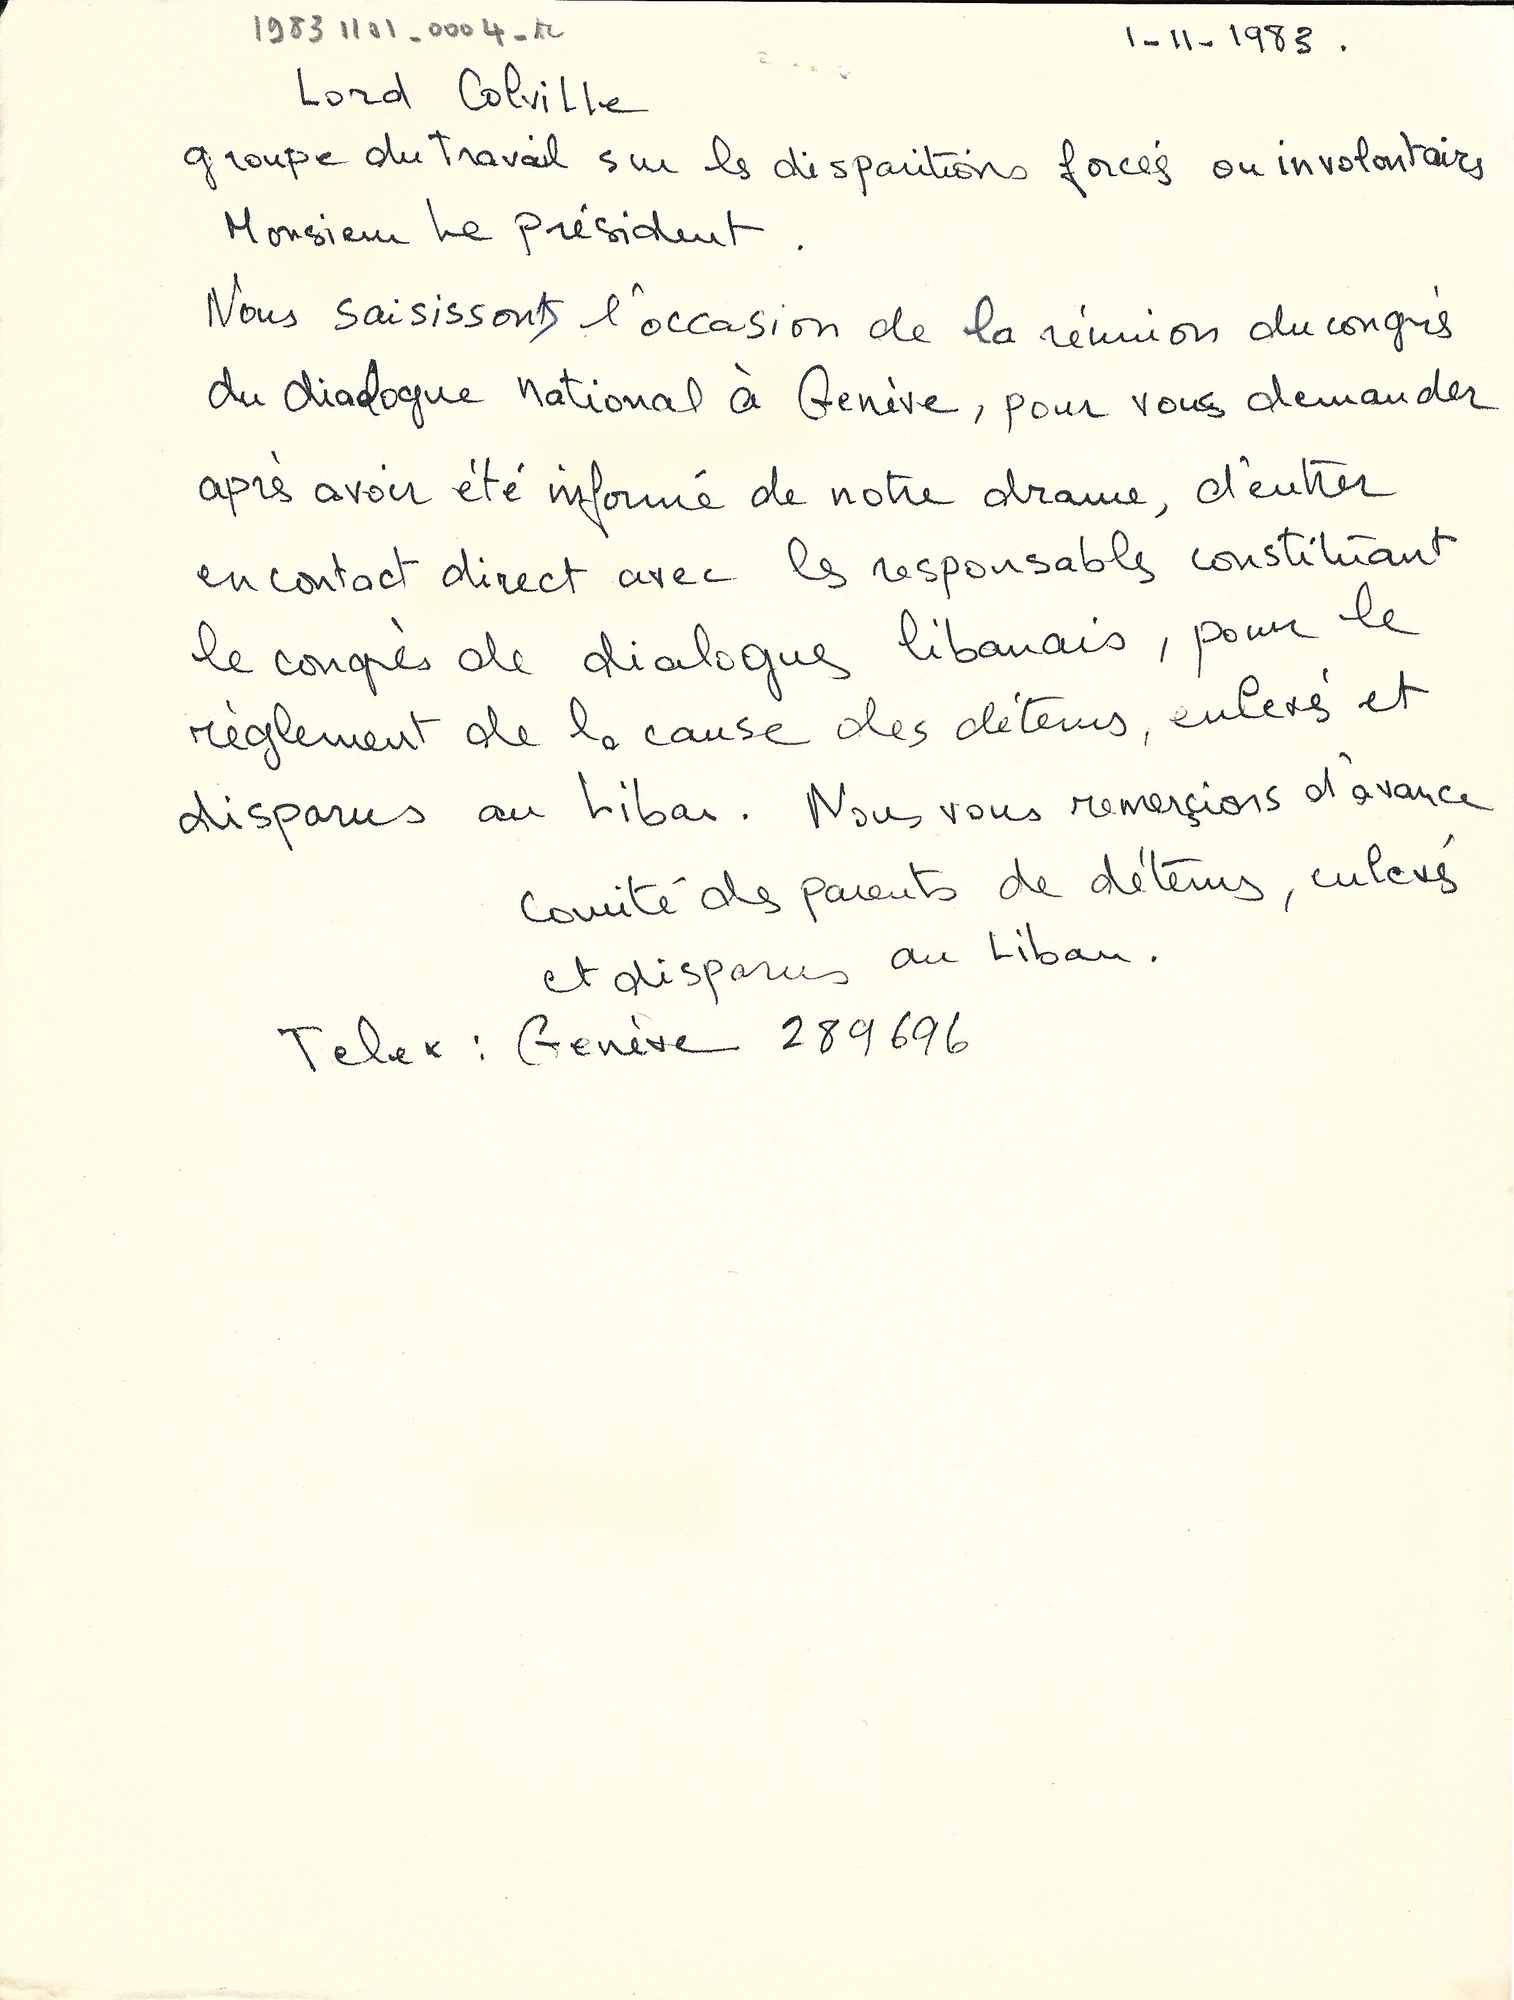 19831101_0004_tc
1-11-1983.
Lord Colville
groupe du Travail sur les disparitions forcés ou involontaires
Monsieur Le président.
Nous saisissons l'occasion de la réunion du congrès
du dialogue national à Genève, pour vous demander
après avoir été informé de notre drame, d'entrer
en contact direct avec les responsables constituant
le congrès de dialogues libanais, pour le
règlement de la cause des détenus, enlevés et
disparus au Liban. Nous vous remerçions d'avance
Comité des parents de détenus, enlevés
et disparus au Liban.
Telex : Genève 289696